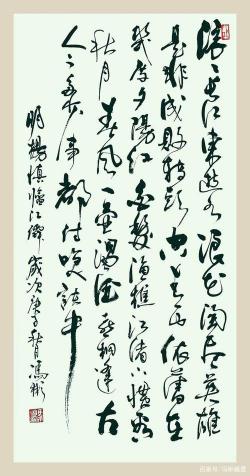 滚滚长江東逝水浪花淘尽英雄
是非成敗转头空青山依舊在
幾度夕陽红白髮漁樵江渚上惯看
秋月春风一壶濁酒喜相逢古
今多少事都付笑谈中
明楊慎臨江仙 歲次庚子秋月馮彬